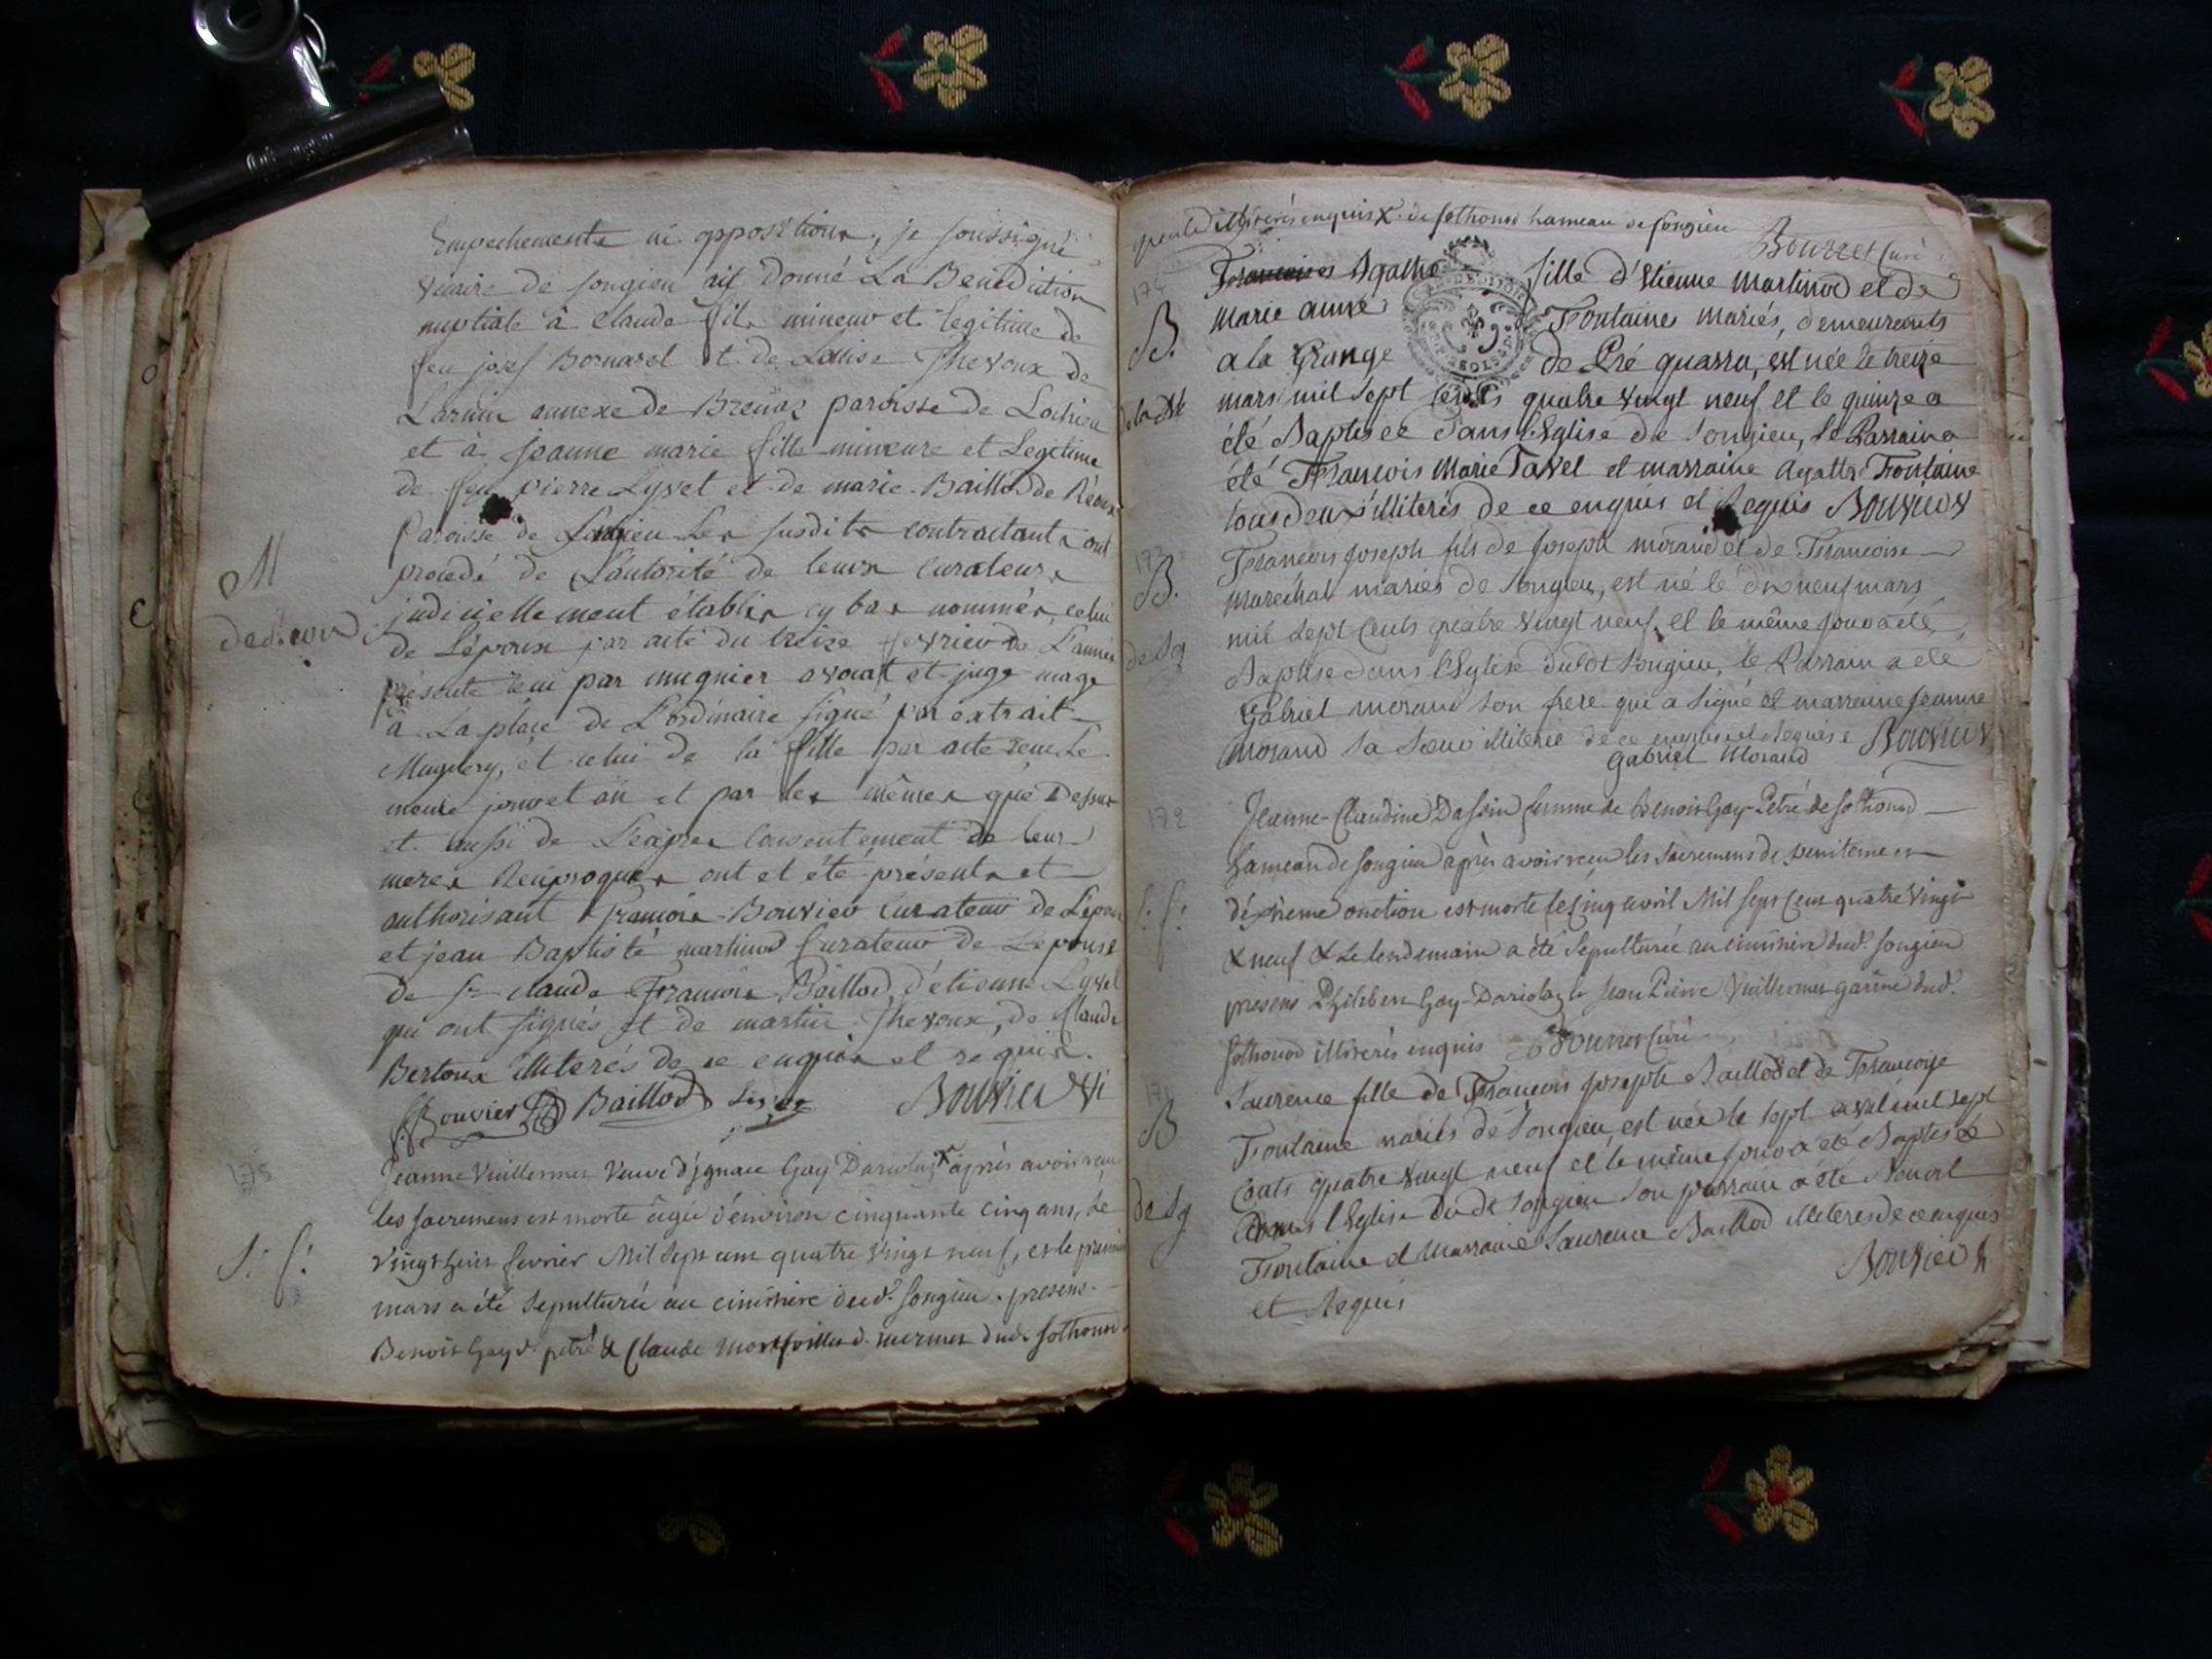 Empechements ni oppositions, je soussigné
vicaire de songieu ait donné La Benediction
nuptiale à claude fils mineur et legitime de
feu josef Bornarel et de Louise Thevoux de
annexe de Brenaz paroisse de Lochieu
et à jeanne marie fille mineure et Legitime
de feu pierre Lyvet et de marie Baillod de
Paroisse de Songieu Les susdits contractants ont
procedé de L'autorité de leurs curateurs
judiciellement établis cy bas nommés, celui
de L'époux par acte du treize fevrier de L'année
présente reçu par mugnier avocat et juge mage
à La place de L'ordinaire signé par extrait
et celui de la fille par acte reçu Le
meme jour et an et par les mêmes que Dessus
et aussi de L'exprès consentement de leurs
meres Reciproques ont et été présents et
authorisant françois Bouvier Curateur de L'époux
et jean Baptiste martinod Curateur de Lepouse
de sr claude François Baillod, d'étienne Lyvet
qui ont signés et de martin Thevoux, de Claude
Bertoux illiterés de ce enquis et requis.
Bouvier Baillod Bouvier Vi
M
175
Jeanne Vuillermet Veuve d'ignace Gay Dariolaz x après avoir reçu
les sacremens est morte âgée d'environ cinquante cinq ans, le
vingt huit fevrier Mil Sept cent quatre vingt neuf, et le premier
mars a été sepulturée au cimetière dud. songieu. presens
Benoit Gay d. petré & Claude d. mermet dud. sothonod
S. f.
illiterés enquis X. de sothonod hameau de songieu
Bourret Curé
174
B.
Agathe fille d'Etienne Martinod et de
Marie anne Fontaines mariés, demeurants
a la Grange de Pré quarra, est née le treize
mars mil sept cents quatre vingt neuf et le quinze a
été Baptisée dans l'Eglise de songieu, le Parrain a
été François Marie Tavel et marraine Agathe Fontaine
tous deux illiterés de ce enquis et Requis Bouvier V
173
B.
de Sg
François joseph fils de joseph morand et de Françoise
marechal mariés de songieu, est né le dix neuf mars
mil sept cents quatre vingt neuf et le même jour a été
Baptisé dans l'Eglise dudt songieu, le Parrain a été
Gabriel morand son frere qui a signé et marraine jeanne
morand sa soeur illiterée de ce enquise et Requise Bouvier V
Gabriel Morand
172
S. f.
Jeanne-Claudine Dassin femme de Benoit Gay-Petré de sothonod
hameau de songieu après avoir reçu les sacremens de penitence et
d'éxtreme onction est morte le Cinq avril Mil sept Cent quatre Vingt
& neuf & Le lendemain a été sepulturée au cimetière dud. songieu
presens Philibert Gay-Dariolaz & Jean Pierre Vuillermet garine dud.
sothonod illiterés enquis Bourret Curé
B
de Sg
Laurence fille de François joseph Baillod et de Françoise
Fontaine mariés de songieu, est née le sept avril mil sept
Cents quatre vingt neuf et le même jour a été Baptisée
dans l'Eglise dudt songieu son parrain a été Benoit
Fontaine et Marraine Laurence Baillod illeterés de ce enquis
et Requis Bouvier V